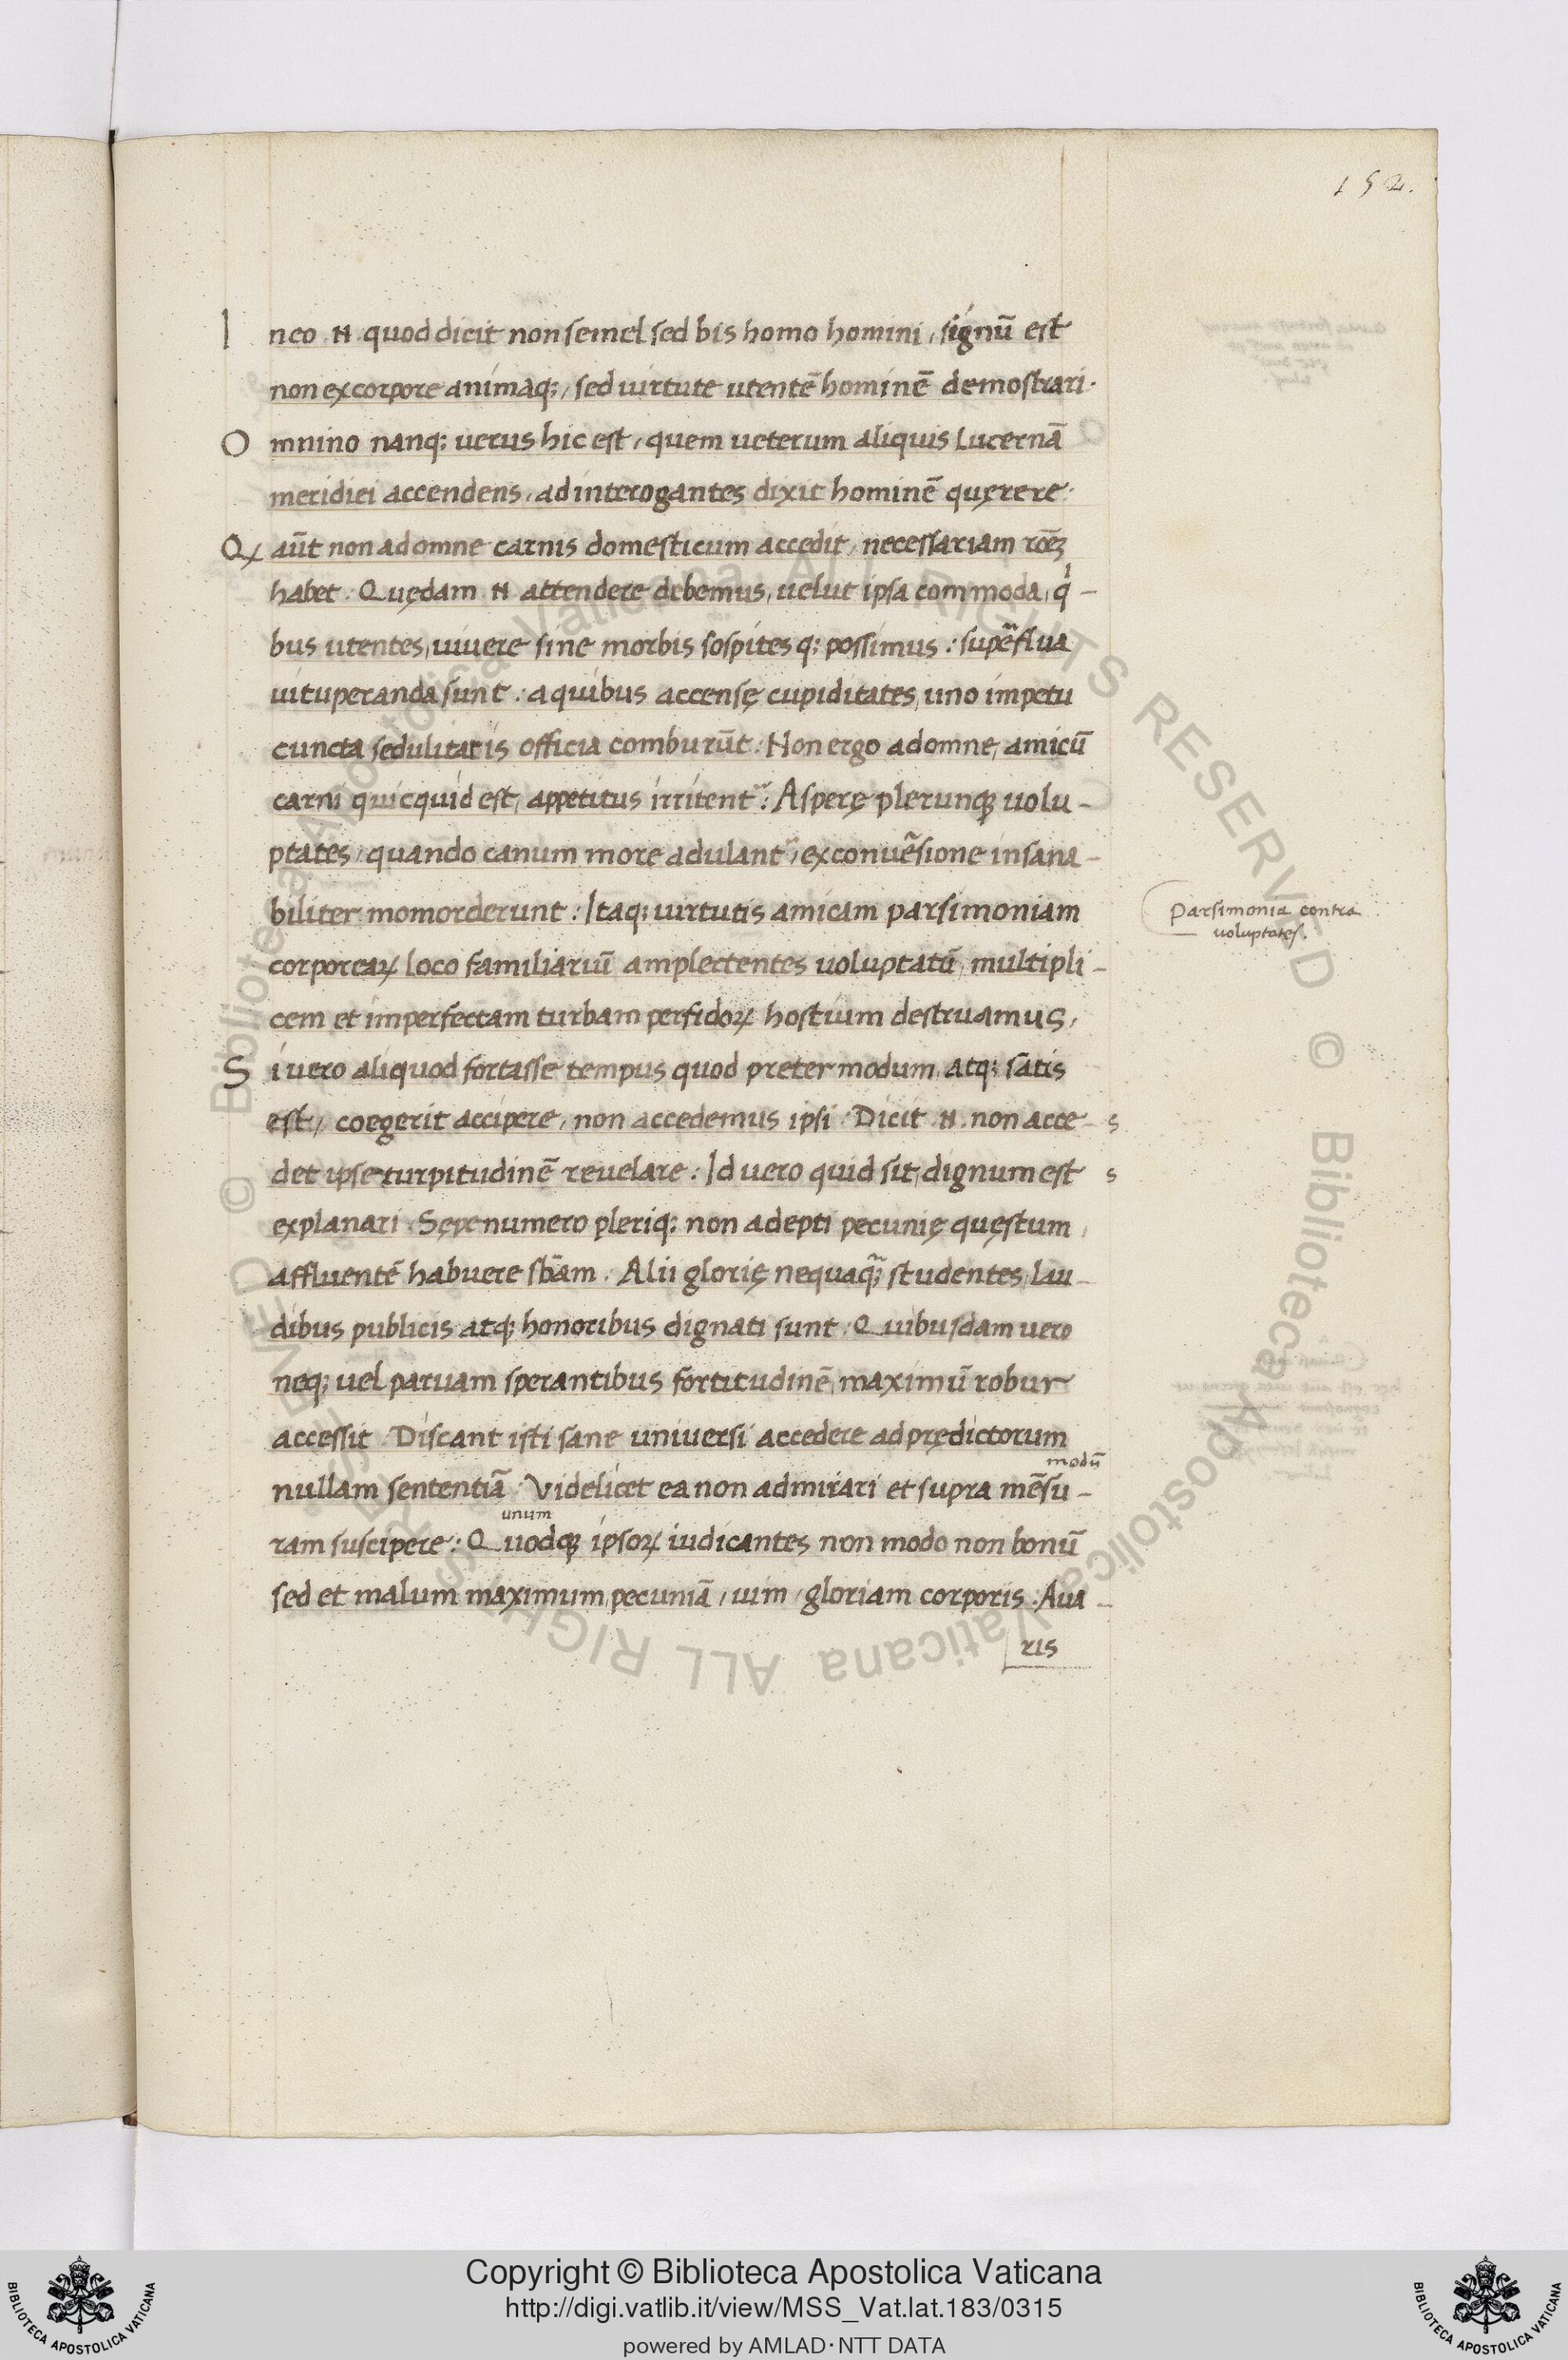 152.
In eo .N. quod dicit non semel sed bis homo homini, signū est
non ex corpore animaq;, sed uirtute utentē hominē demostrari.
Omnino nanq; uerus hic est, quem ueterum aliquis Lucernā
meridiei accendens, ad interogantes dixit hominē quęrere:
Qꝝ aūt non ad omne carnis domesticum accedit, necessariam rōēꝫ
habet. Quędam .N. attendere debemus, uelut ipsa commoda, qⁱ-
bus utentes, uiuere sine morbis sospites q; possimus: supēflua
uituperanda sunt: a quibus accensę cupiditates, uno impetu
cuncta sedulitatis officia comburūt. Non ergo ad omne, amicū
carni quicquid est, appetitus irritent᷑: Asperę plerunqꝫ uolu-
ptates, quando canum more adulant᷑, ex conuēsione insana-
biliter momorderunt: Itaq; uirtutis amicam parsimoniam
Parsimonia contra
voluptates.
corporeaꝝ loco familiariū amplectentes uoluptatū, multipli-
cem et imperfectam turbam perfidoꝝ hostium destruamus,
Si uero aliquod fortasse tempus quod preter modum, atq; satis
est, coegerit accipere, non accedemus ipsi. Dicit .N. non acce- s
det ipse turpitudinē reuelare: Id uero quid sit, dignum est s
explanari. Sępe numero pleriq; non adepti pecunię quęstum,
affluentē habuere sbām. Alii glorię nequaq̄; studentes, lau-
dibus publicis atq; honoribus dignati sunt. Quibusdam uero
neq; uel paruam sperantibus fortitudinē, maximū robur
accessit. Discant isti sane uniuersi accedere ad prędictorum
nullam sententiā. Videlicet ea non admirari et supra mēsu-
modū
ram suscipere: Quodqꝫ ipsoꝝ iudicantes non modo non bonū
unum
sed et malum maximum, pecuniā, uim, gloriam corporis. Aua-
ris
Copyright © Biblioteca Apostolica Vaticana
http://digi.vatlib.it/view/MSS_Vat.lat.183/0315
powered by AMLAD·NTT DATA
BIBLIOTECA APOSTOLICA VATICANA
BIBLIOTECA APOSTOLICA VATICANA
© Biblioteca Apostolica Vaticana ALL RIGHTS RESERVED © Biblioteca Apostolica Vaticana ALL RIGHTS RESERVED